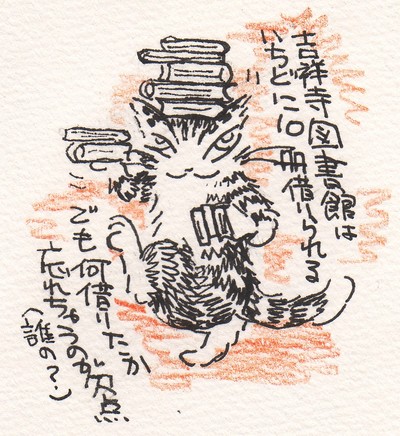 吉祥寺図書館は
いちどに10冊借りられる
でも何借りたか
忘れちゃうのが欠点
(誰の?)